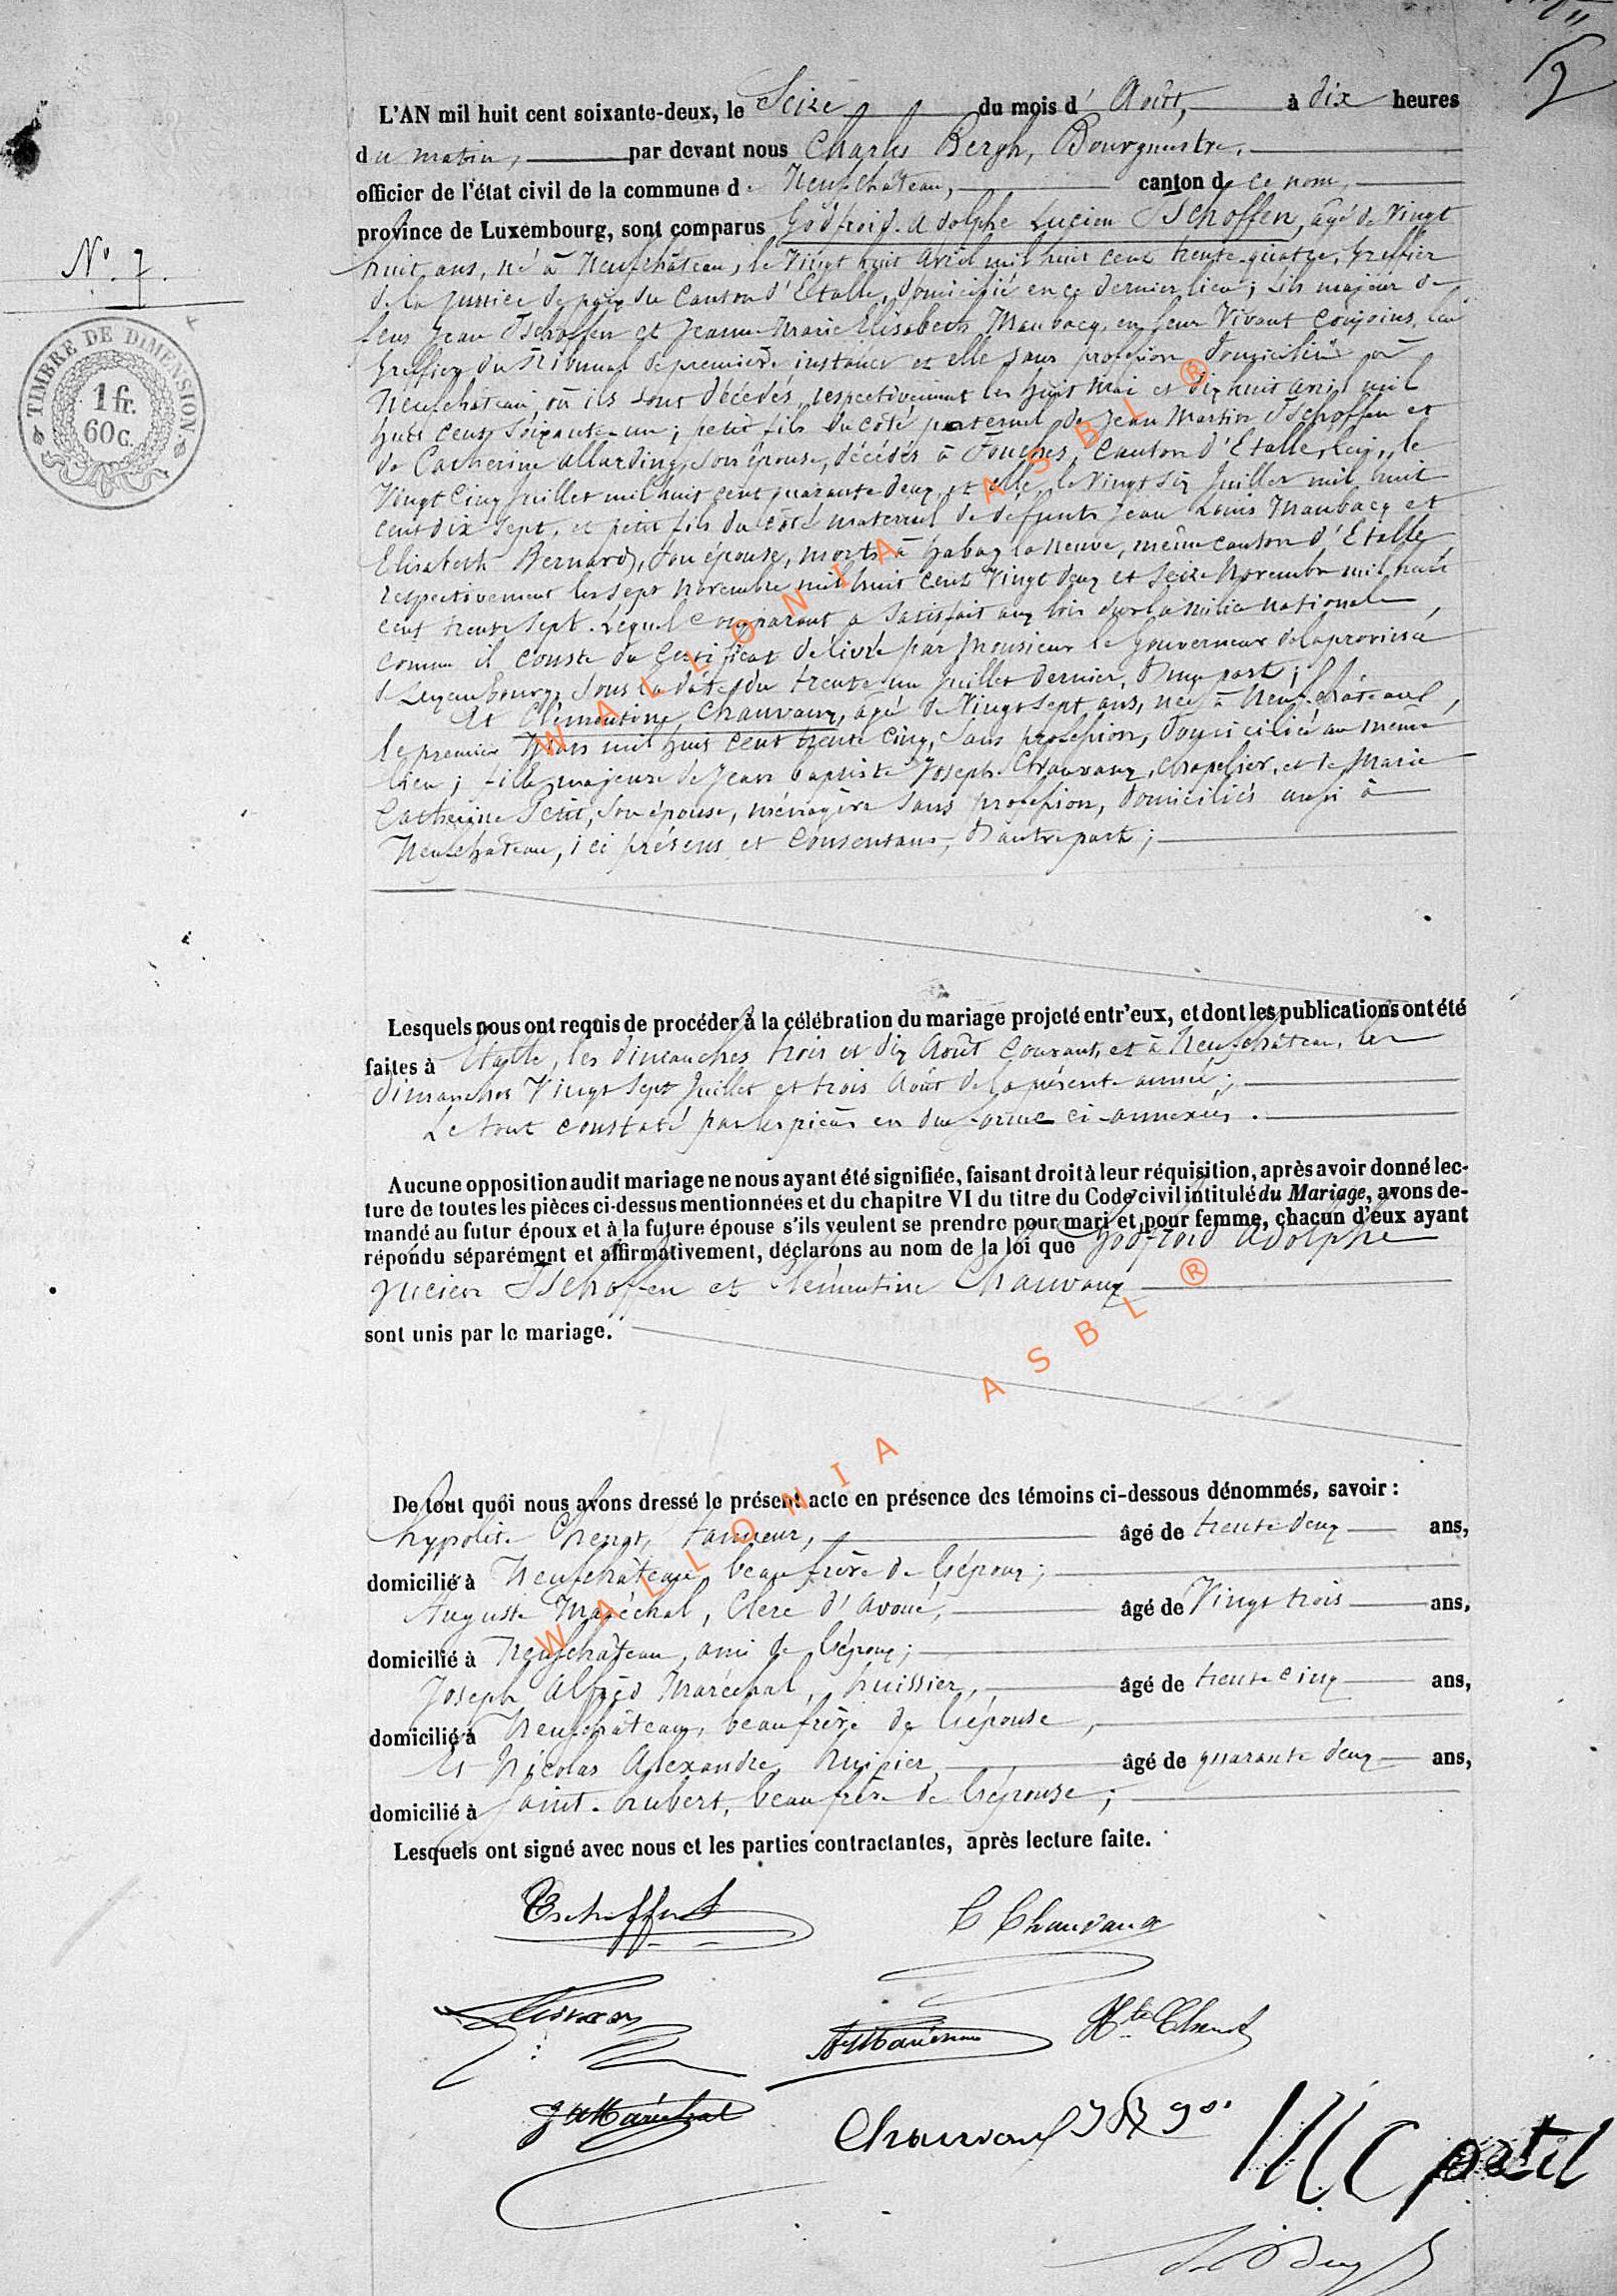 L'AN mil huit cent soixante-deux, le Seize du mois d' Août, à dix heures
du matin, par devant nous Charles Bergh, Bourgmestre,
officier de l'état civil de la commune de Neufchâteau, canton de ce nom,
province de Luxembourg, sont comparus Godfroid Adolphe Lucien Tschoffen, âgé de Vingt
N° 7.
huit ans, né à Neufchâteau, le Vingt huit avril mil huit cent trente quatre, Greffier
de la Justice de paix du Canton d'Etalle, domicilié en ce dernier lieu; fils majeur de
feus Jean Tschoffen et Jeanne Marie Elisabeth Maubacq, en leur Vivant conjoins, lui
Greffier du Tribunal de première instance et elle sans profession domiciliés à
TIMBRE DE DIMENSION.
1 fr.
60 c.
Neufchâteau, où ils sont décédés, respectivement les huit Mai et dix huit avril mil
huit cent soixante-un; petit fils du côté paternel de Jean Martin Tschoffen et
de Catherine Allarding, son épouse, décédés à Fouches, Canton d'Etalle, lui, le
Vingt Cinq Juillet mil huit cent quarante deux, et elle, le Vingt six Juillet mil huit
cent dix sept, et petit fils du côté maternel de défunts Jean Louis Maubacq et
Elisabeth Bernard, son épouse, morts à habay la neuve, même canton d'Etalle
respectivement les sept novembre mil huit cent Vingt deux et seize Novembre mil huit
cent trente sept. Lequel comparant a satisfait aux lois sur la milice nationale,
comme il conste du Certificat délivré par Monsieur le Gouverneur de la province
de Luxembourg, sous la date du trente un Juillet dernier, d'une part;
Et Clémentine Chauvaux, âgée de Vingt sept ans, née à Neufchâteau,
le premier Mars mil huit cent trente cinq, sans profession, domiciliée au même
lieu; fille majeure de Jean baptiste Joseph Chauvaux, chapelier, et de Marie
Catherine Petit, son épouse, ménagère sans profession, domiciliés aussi à
Neufchâteau, ici présens et consentans, d'autre part;
Lesquels nous ont requis de procéder à la célébration du mariage projeté entr'eux, et dont les publications ont été
faites à Etalle, les dimanches trois et dix Août courant, et à Neufchâteau, les
dimanches Vingt sept Juillet et trois Août de la présente année;
Le tout constaté par les pièces en due forme ci-annexées.
Aucune opposition audit mariage ne nous ayant été signifiée, faisant droit à leur réquisition, après avoir donné lec-
ture de toutes les pièces ci-dessus mentionnées et du chapitre VI du titre du Code civil intitulé du Mariage, avons de-
mandé au futur époux et à la future épouse s'ils veulent se prendre pour mari et pour femme, chacun d'eux ayant
répondu séparément et affirmativement, déclarons au nom de la loi que Godfroid Adolphe
Lucien Tschoffen et Clémentine Chauvaux
sont unis par le mariage.
De tout quoi nous avons dressé le présent acte en présence des témoins ci-dessous dénommés, savoir :
hypolite Chenot, tanneur, âgé de trente deux ans,
domicilié à Neufchâteau, beau frère de l'époux;
Auguste Maréchal, Clerc d'avoué, âgé de Vingt trois ans,
domicilié à Neufchâteau, ami de l'époux;
Joseph Alfred Maréchal, huissier, âgé de trente cinq ans,
domicilié à Neufchâteau, beau frère de l'épouse,
Et Nicolas Alexandre, huissier, âgé de quarante deux ans,
domicilié à Saint-hubert, beau frère de l'épouse;
Lesquels ont signé avec nous et les parties contractantes, après lecture faite.
Tschoffen
C Chauvaux
Ate Maréchal
Hte Chenot
J A Maréchal
Chauvaux J B Jos
M C petit
WALLONIA ASBL ®
WALLONIA ASBL ®